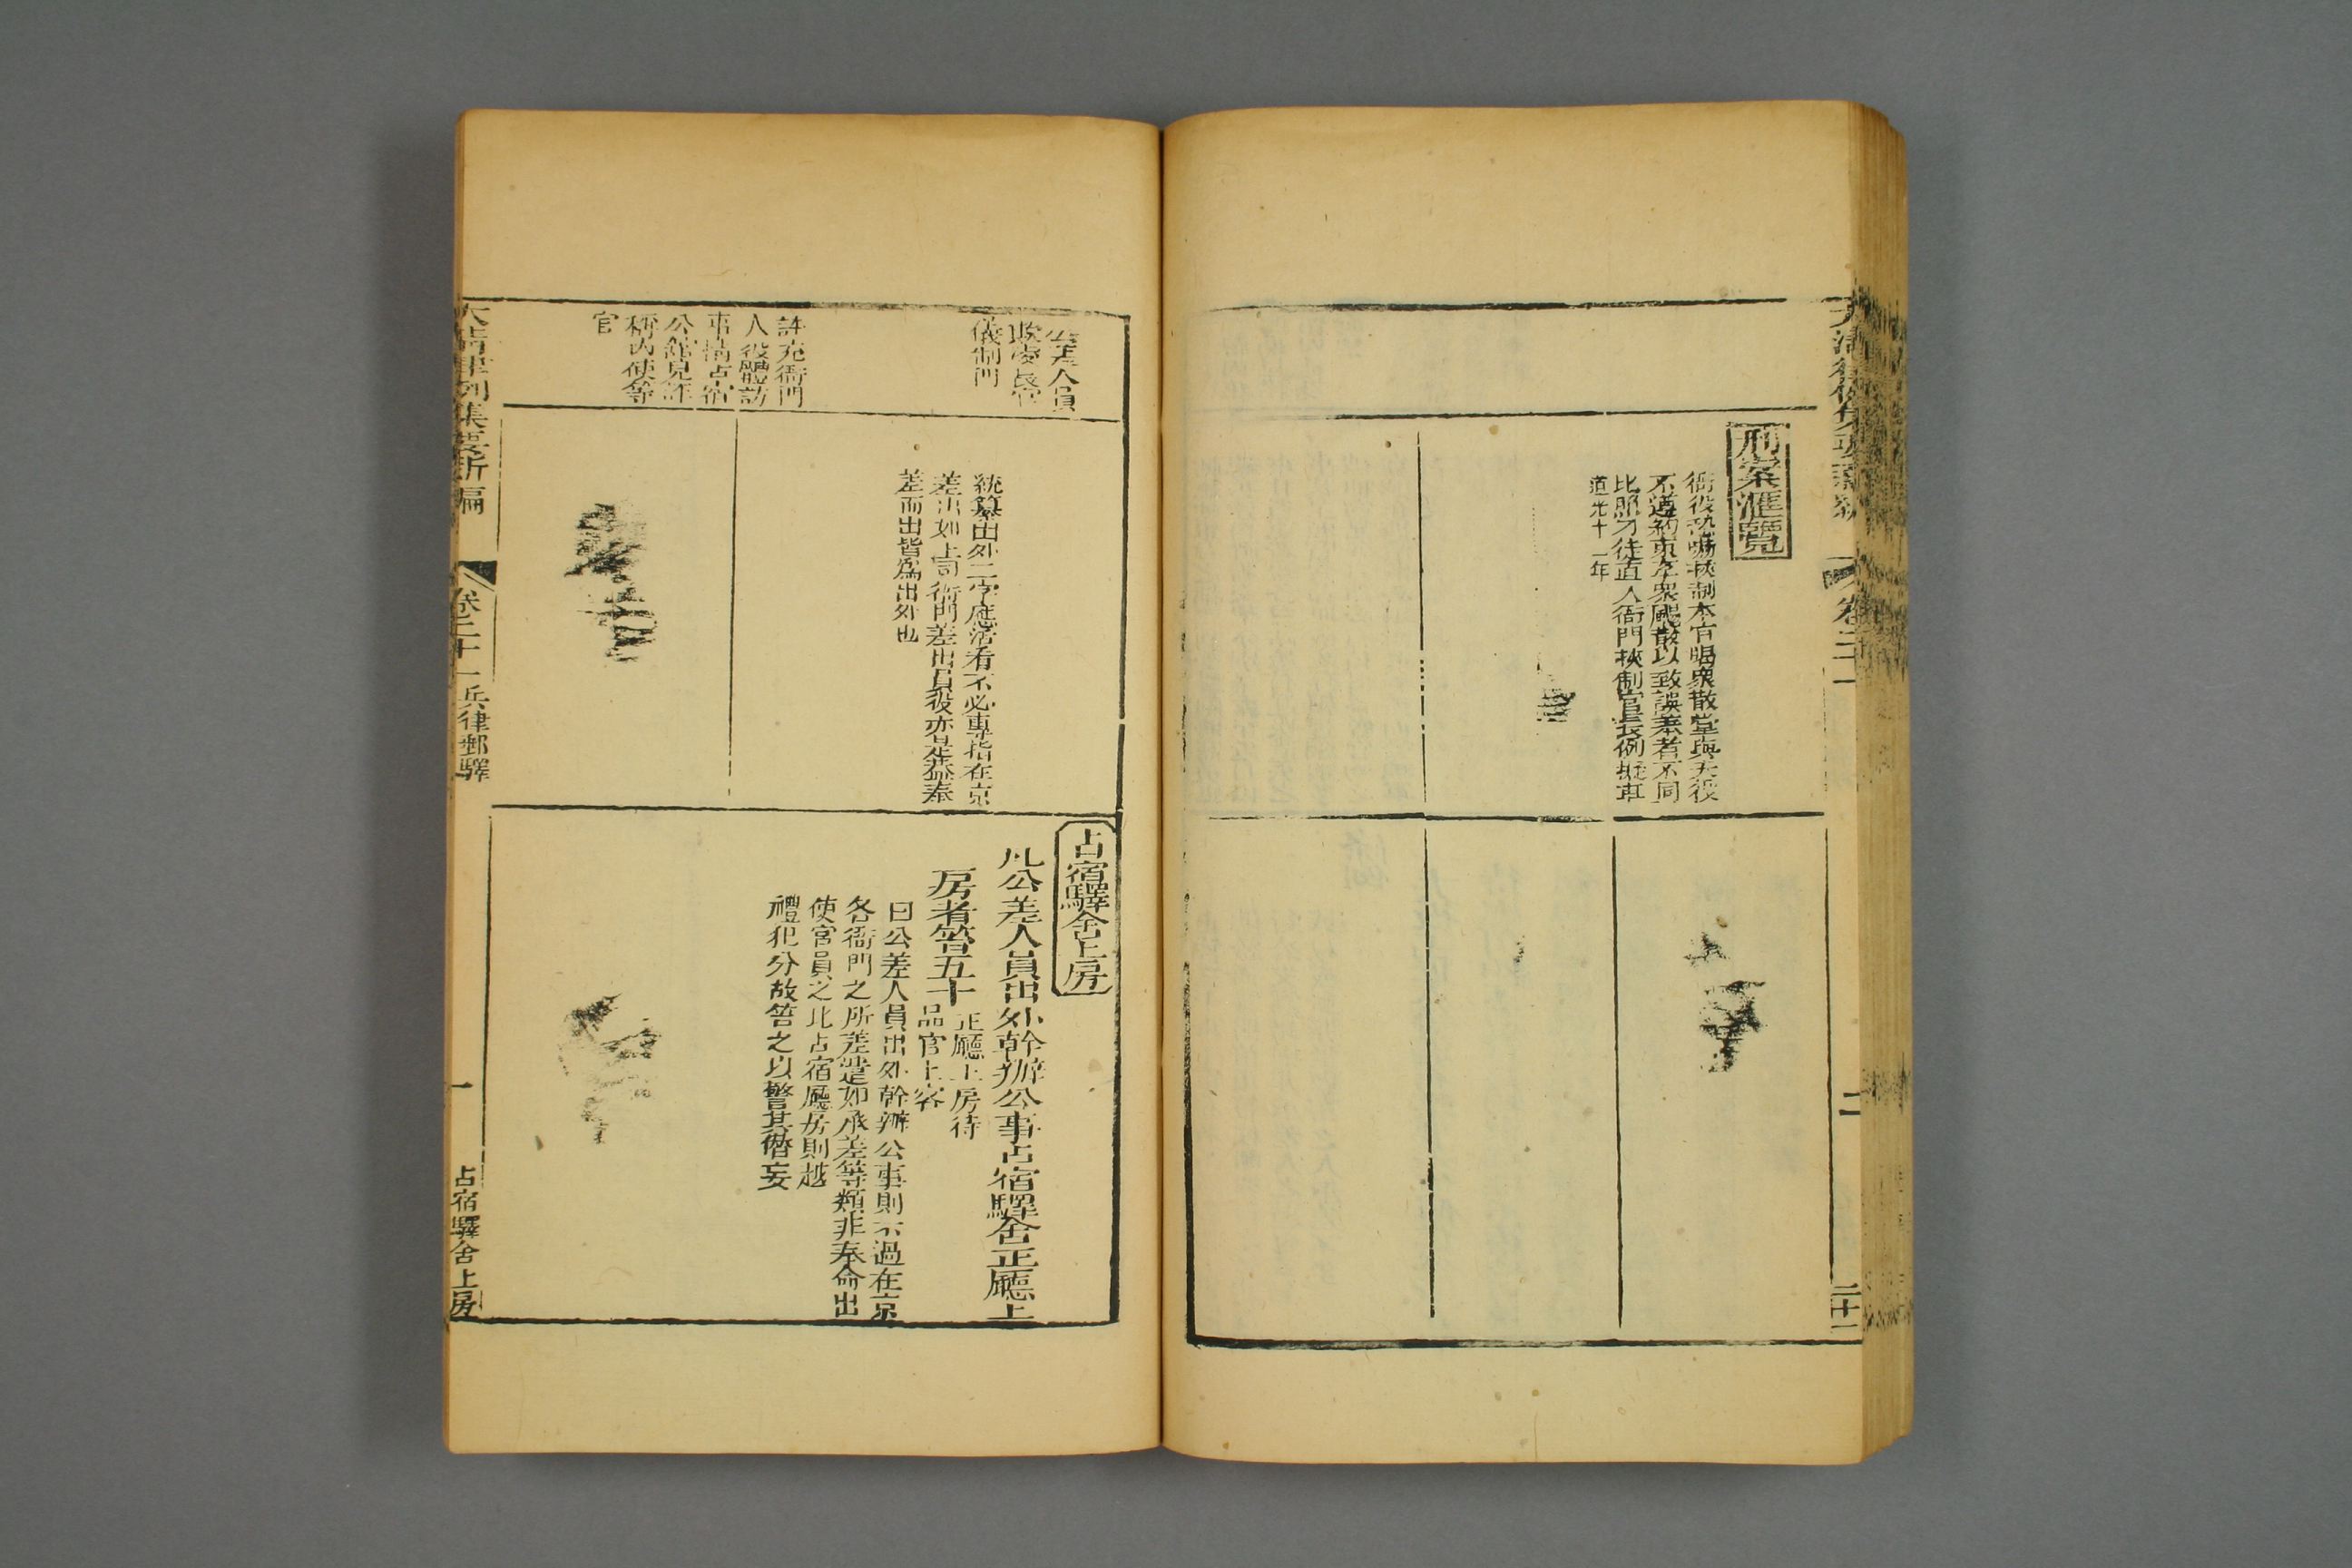 大清律例集要新編
卷二十一
二
二十一
刑案滙覽
衙役恐嚇挾制本官喝衆散堂與夫役
不遵約束卒衆颺散以致誤差者不同
比照刁徒直入衙門挾制官長例擬軍
道光十一年
公差人員
欺凌長官
儀制門
詐充衙門
人役體訪
事情占宿
公館見詐
稱內使等
官
統纂出外二字應活看不必專指在京
差出如上司衙門差出員役亦是蓋奉
差而出皆爲出外也
占宿驛舍上房
凡公差人員出外幹辦公事占宿驛舍正廳上
房者笞五十
正廳上房待
品官上客
曰公差人員出外幹辦公事則不過在京
各衙門之所差遣如承差等類非奉命出
使官員之比占宿廳房則越
禮犯分故笞之以警其僭妄
大清律例集要新編
卷二十一
兵律郵驛
一
占宿驛舍上房